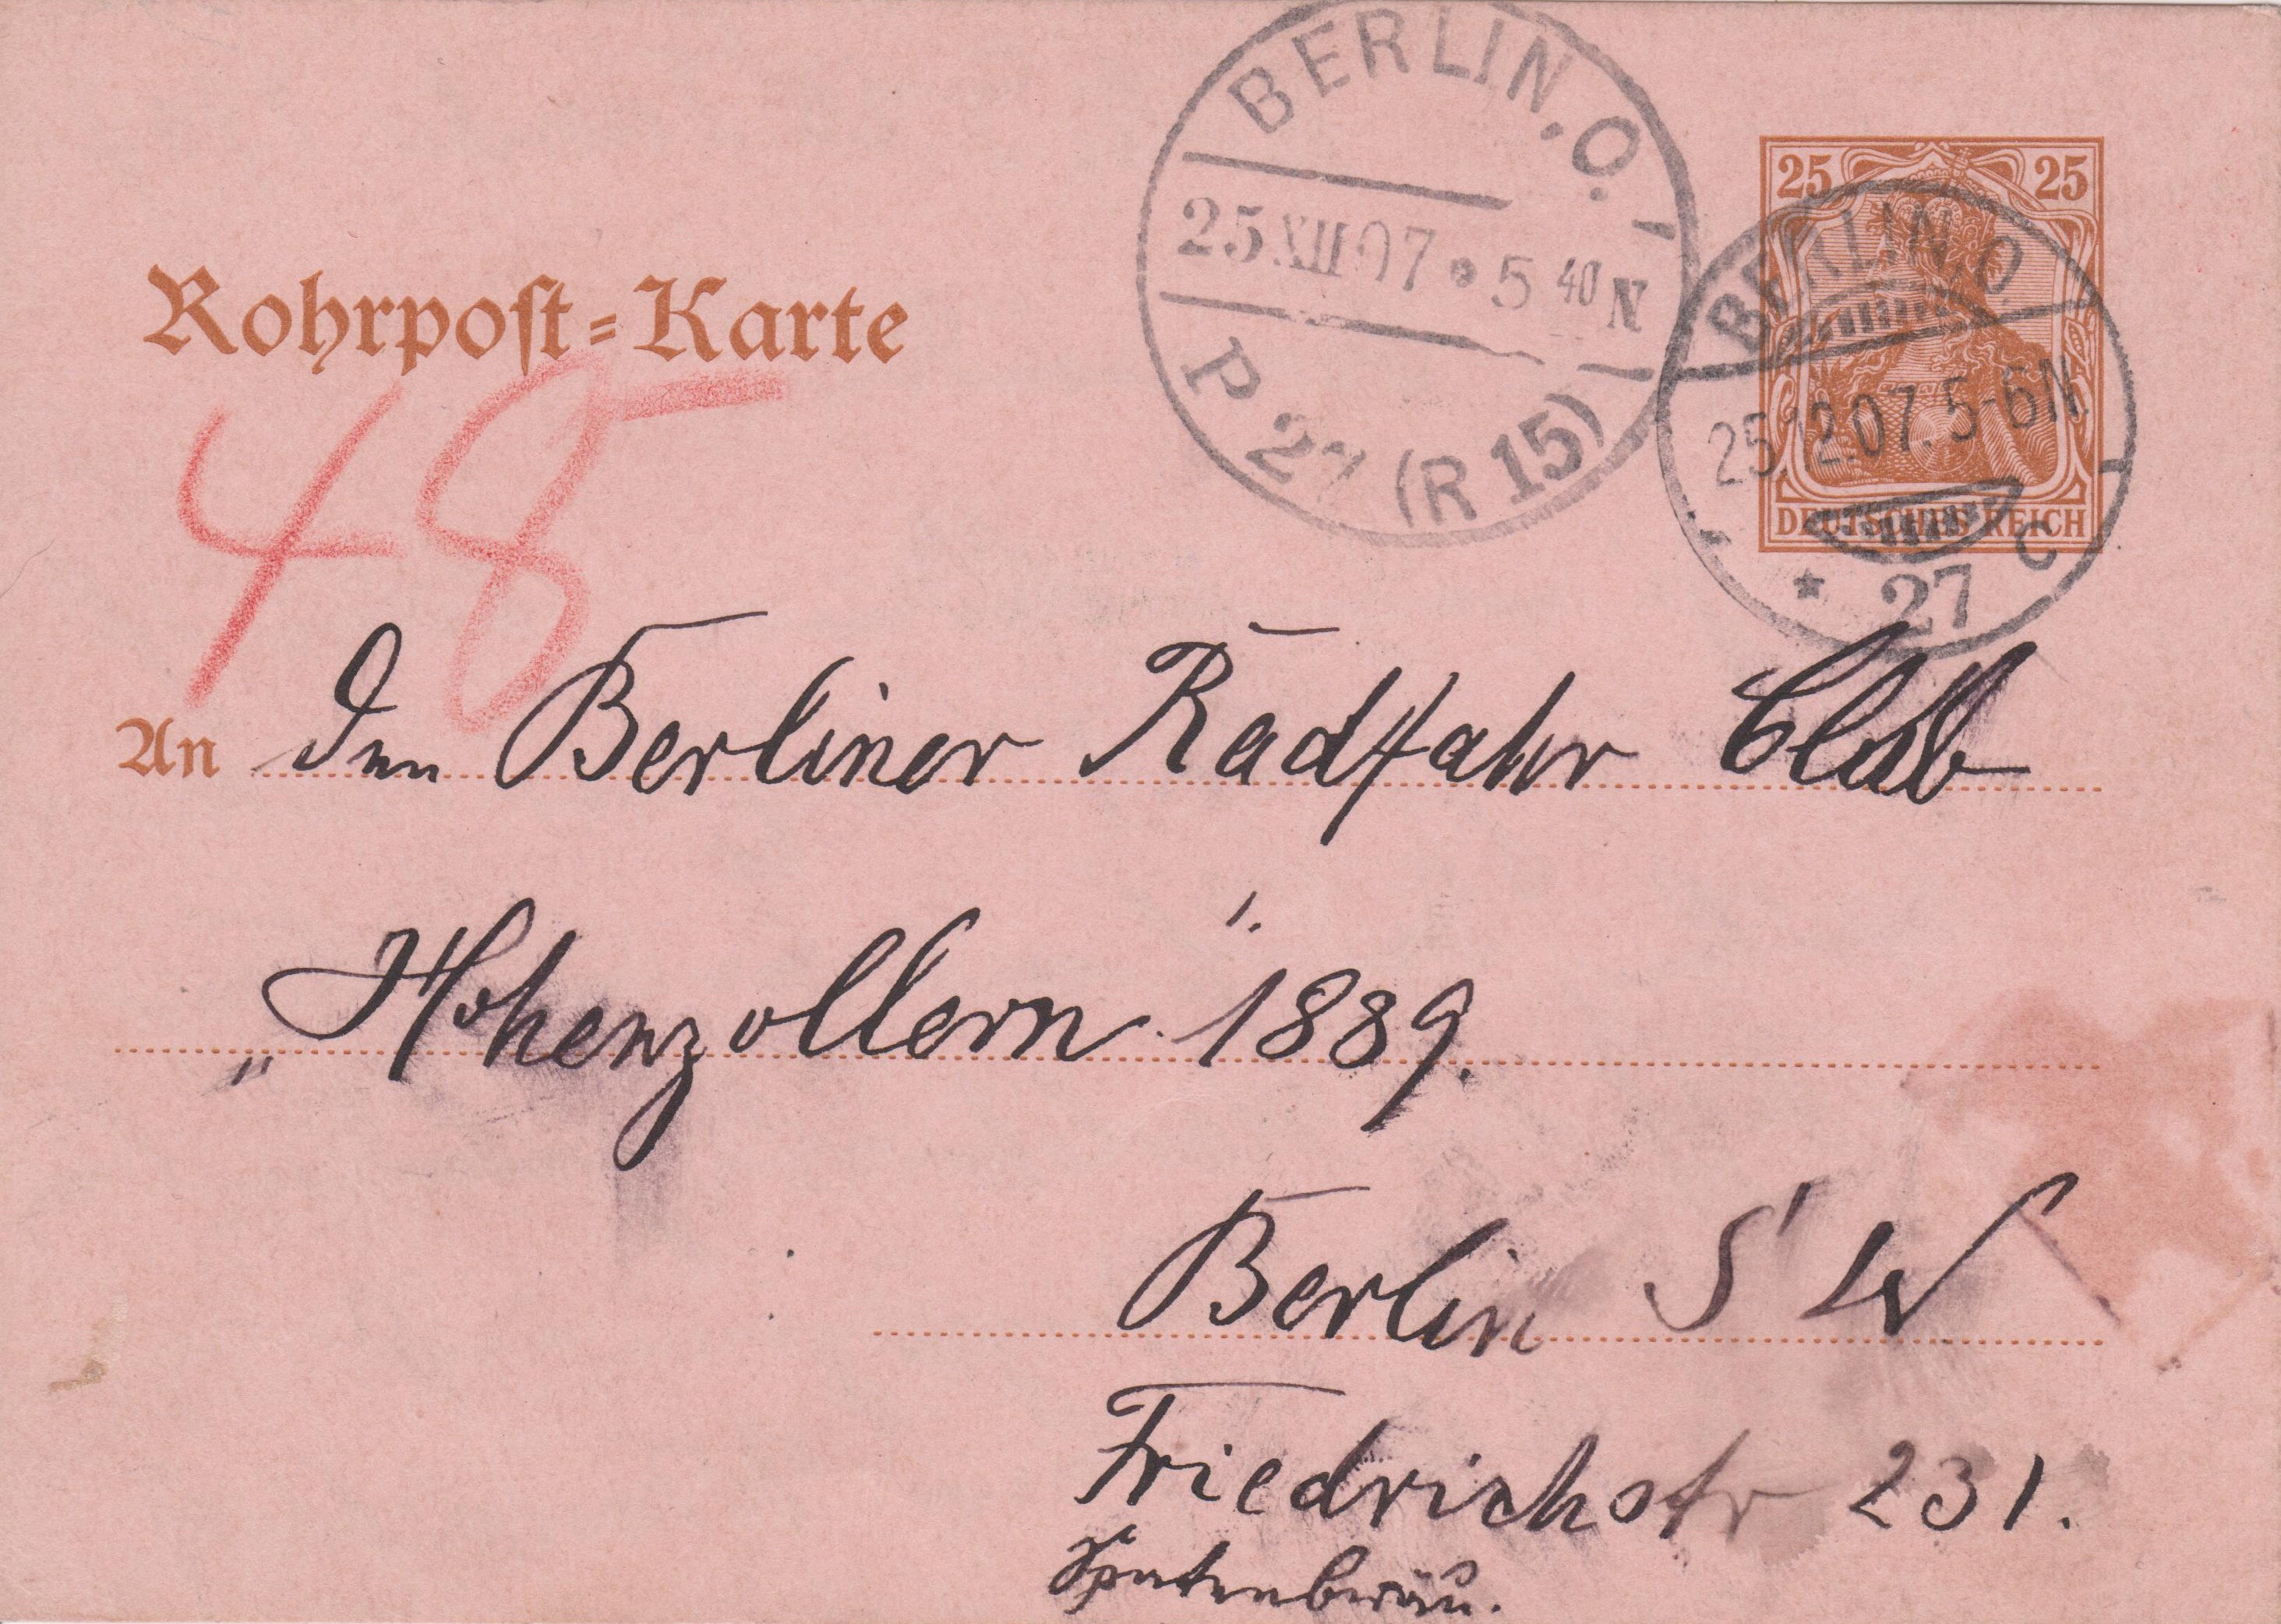 BERLIN, O.
25 XII 07 * 5 40 N
P 27 (R 15)
25 25
DEUTSCHES REICH
BERLIN, O.
25.12.07. 5-6N
* 27 C
Rohrpost=Karte
48
An Den Berliner Radfahr Club
„Hohenzollern" 1889.
Berlin SW
Friedrichstr 231.